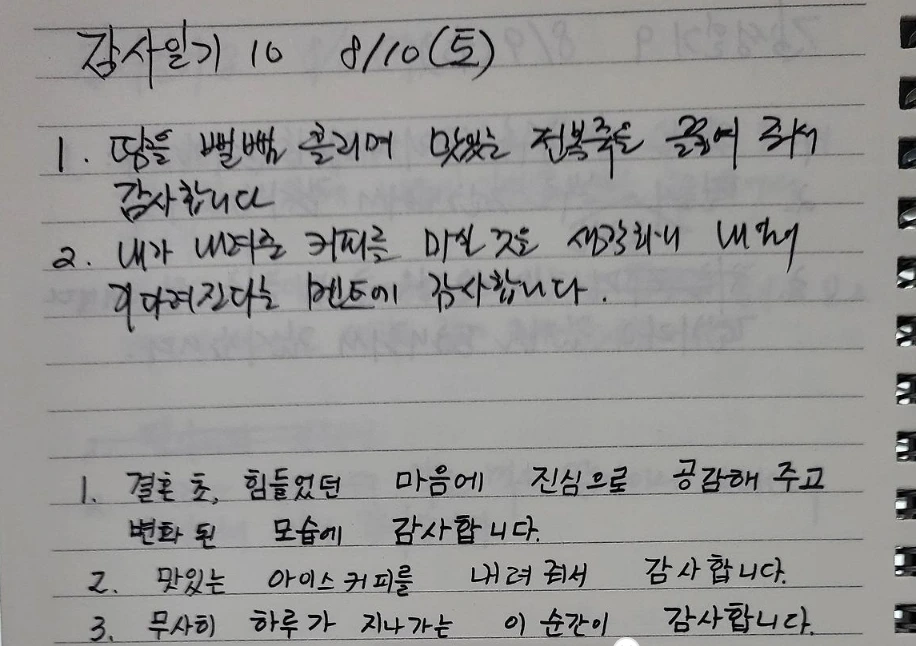 감사일기 10 8/10(토)
1. 땀을 뻘뻘 흘리며 맛있는 전복죽을 끓여 줘서
감사합니다
2. 내가 내려준 커피를 마실 것을 생각하니 내일이
기다려진다는 멘트에 감사합니다.
1. 결혼 초, 힘들었던 마음에 진심으로 공감해 주고
변화 된 모습에 감사합니다.
2. 맛있는 아이스커피를 내려 줘서 감사합니다.
3. 무사히 하루가 지나가는 이 순간이 감사합니다.